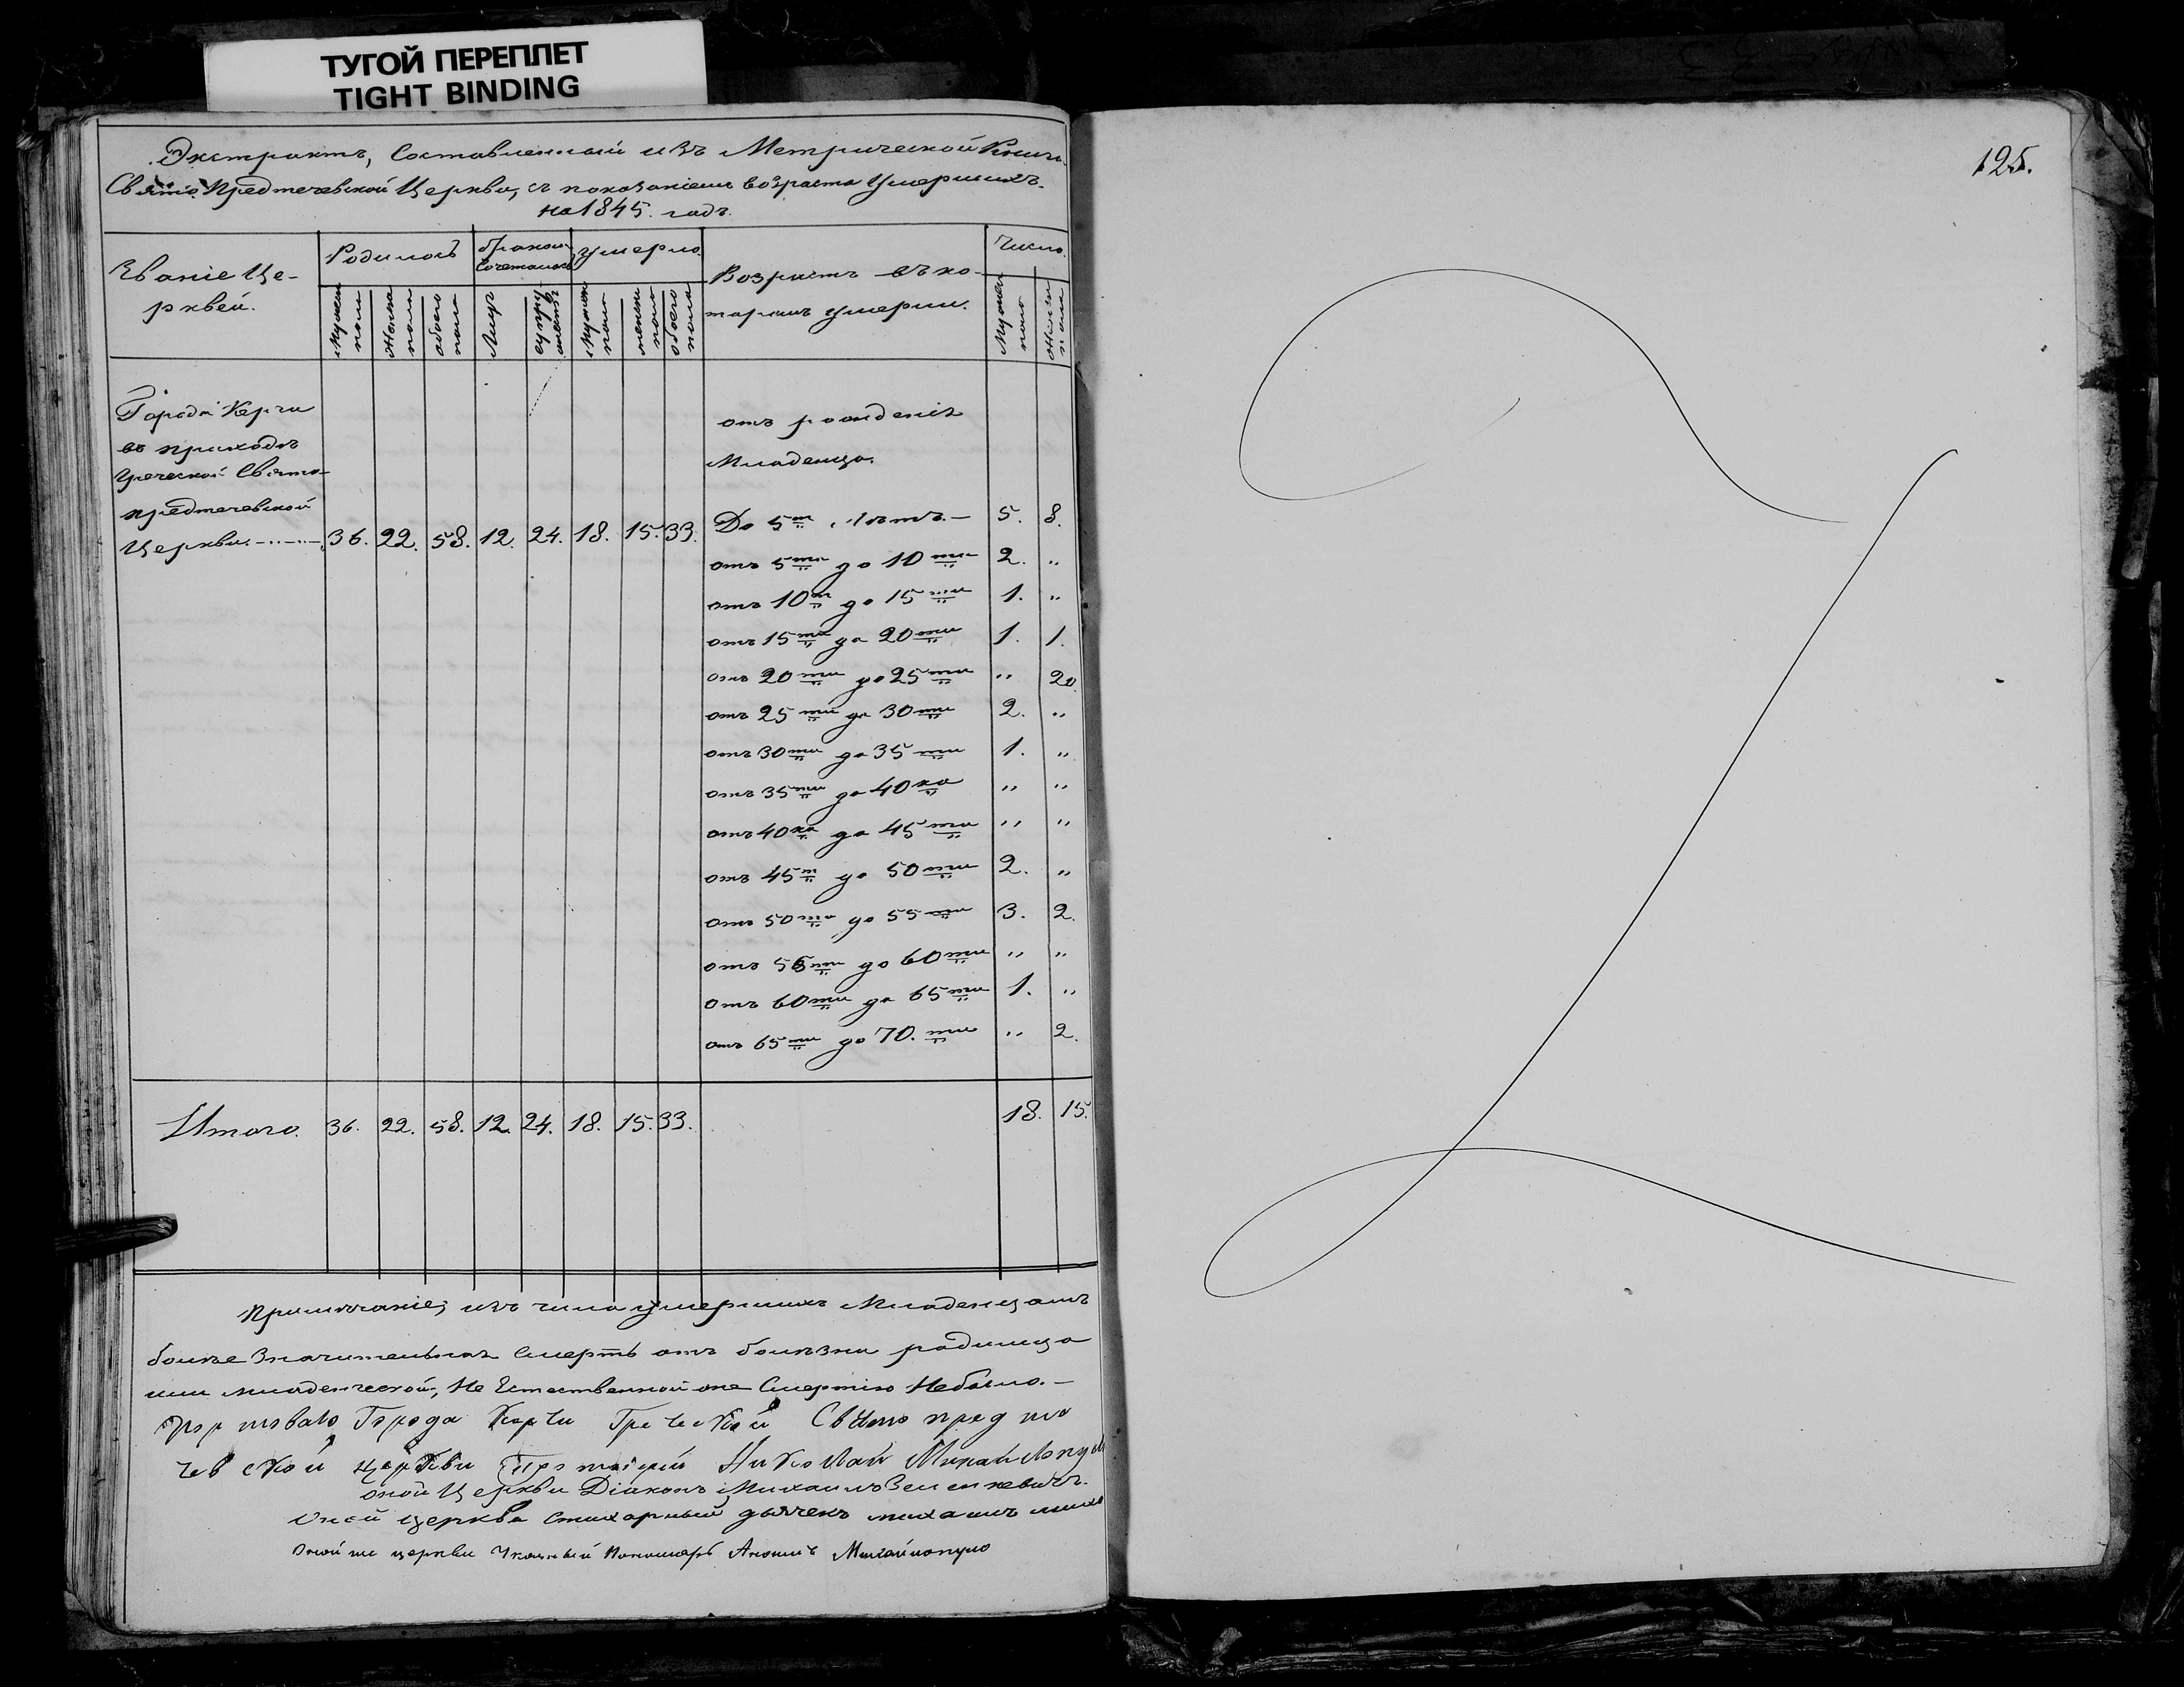 ТУГОЙ ПЕРЕПЛЕТ
TIGHT BINDING
Экстрактъ, Составленный изъ Метрической Книги
Свято Предтечевской Церкви, съ показаніемъ возраста Умершихъ.
на 1845. годъ.
Званіе Це-
рквей.
Родилось
Мужеска пола
Женска пола
обоего пола
браком Сочеталось
Лицъ
супружествъ
умерло.
Мужеска пола
женска пола
обоего пола
Возрастъ въ ко-
торомъ умерли.
Число.
Мужеска пола
Женска пола
Города Керчи
въ приходѣ
Греческой Свято-
предтечевской
Церкви. 36. 22. 58. 12. 24. 18. 15. 33.
отъ рожденія
Младенца.
До 5ти Лѣтъ.— 5. 8.
отъ 5ти до 10ти 2. "
отъ 10ти до 15ти 1. "
отъ 15ти до 20ти 1. 1.
отъ 20ти до 25ти " 2
отъ 25ти до 30ти 2. "
отъ 30ти до 35ти 1. "
отъ 35ти до 40ка " "
отъ 40ка до 45ти " "
отъ 45ти до 50ти 2. "
отъ 50ти до 55ти 3. 2.
отъ 55ти до 60ти " "
отъ 60ти до 65ти 1. "
отъ 65ти до 70.ти " 2.
Итого. 36. 22. 58. 12. 24. 18. 15. 33. 18. 15.
Примѣчаніе; изъ числа умершихъ Младенцамъ
болѣе Значительная Смерть отъ болѣзни родимца
или младенческой, Не Естественной же Смертію Небыло.—
Города Керчи Греческой Свято предте
чевской церкви Протоіерей Николай
оной Церкви Діаконъ Михаилъ
Оной церкви Стихарный дьячекъ михаилъ
Оной же церкви Указный Пономарь Михайлопуло
125.